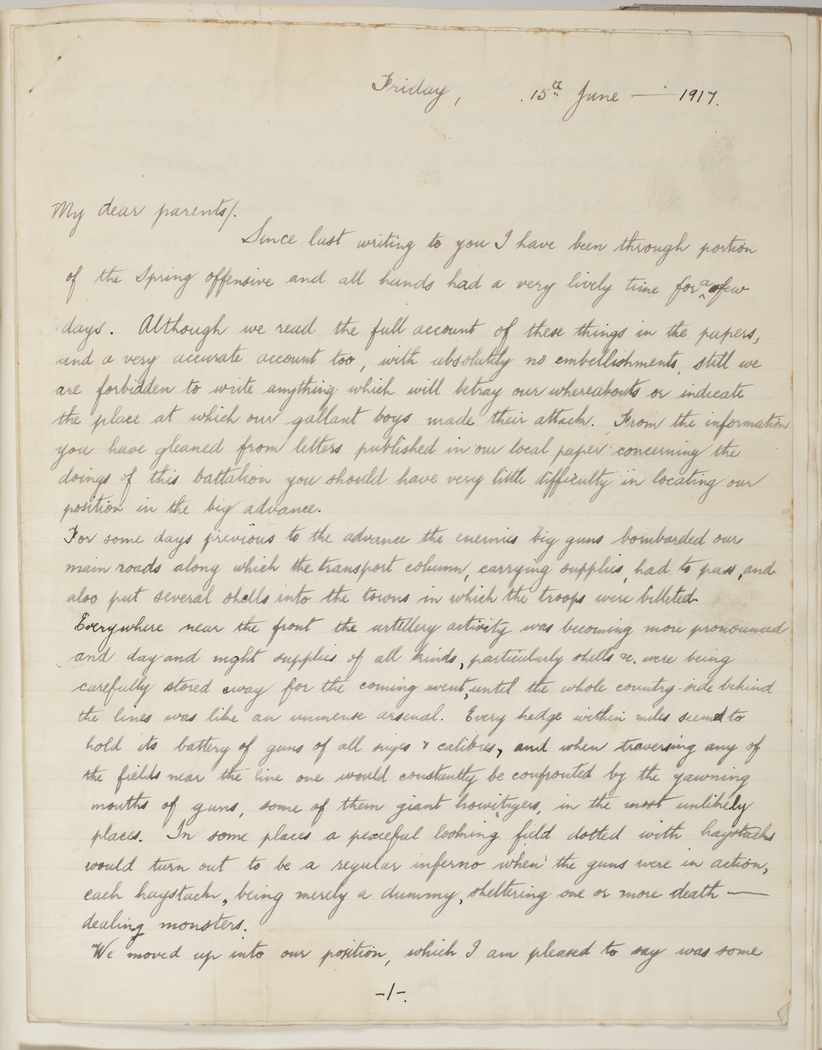 Friday, 15th June — 1917.
My dear parents/.
Since last writing to you I have been through portion
of the Spring offensive and all hands had a very lively time for a few
days. Although we read the full account of these things in the papers,
and a very accurate account too, with absolutely no embellishments, still we
are forbidden to write anything which will betray our whereabouts or indicate
the place at which our gallant boys made their attack. From the information
you have gleaned from letters published in our local paper concerning the
doings of this battalion you should have very little difficulty in locating our
position in the big advance.
For some days previous to the advance the enemies big guns bombarded our
main roads along which the transport column, carrying supplies, had to pass, and
also put several shells into the towns in which the troops were billeted.
Everywhere near the front the artillery activity was becoming more pronounced
and day and night supplies of all kinds, particularly shells &c. were being
carefully stored away for the coming event, until the whole country-side behind
the lines was like an immense arsenal. Every hedge within miles seemed to
hold its battery of guns of all sizes & calibres, and when traversing any of
the fields near the line one would constantly be confronted by the yawning
mouths of guns, some of them giant howitzers, in the most unlikely
places. In some places a peaceful looking field dotted with haystacks
would turn out to be a regular inferno when the guns were in action,
each haystack, being merely a dummy, sheltering one or more death —
dealing monsters.
We moved up into our position, which I am pleased to say was some
-1-.